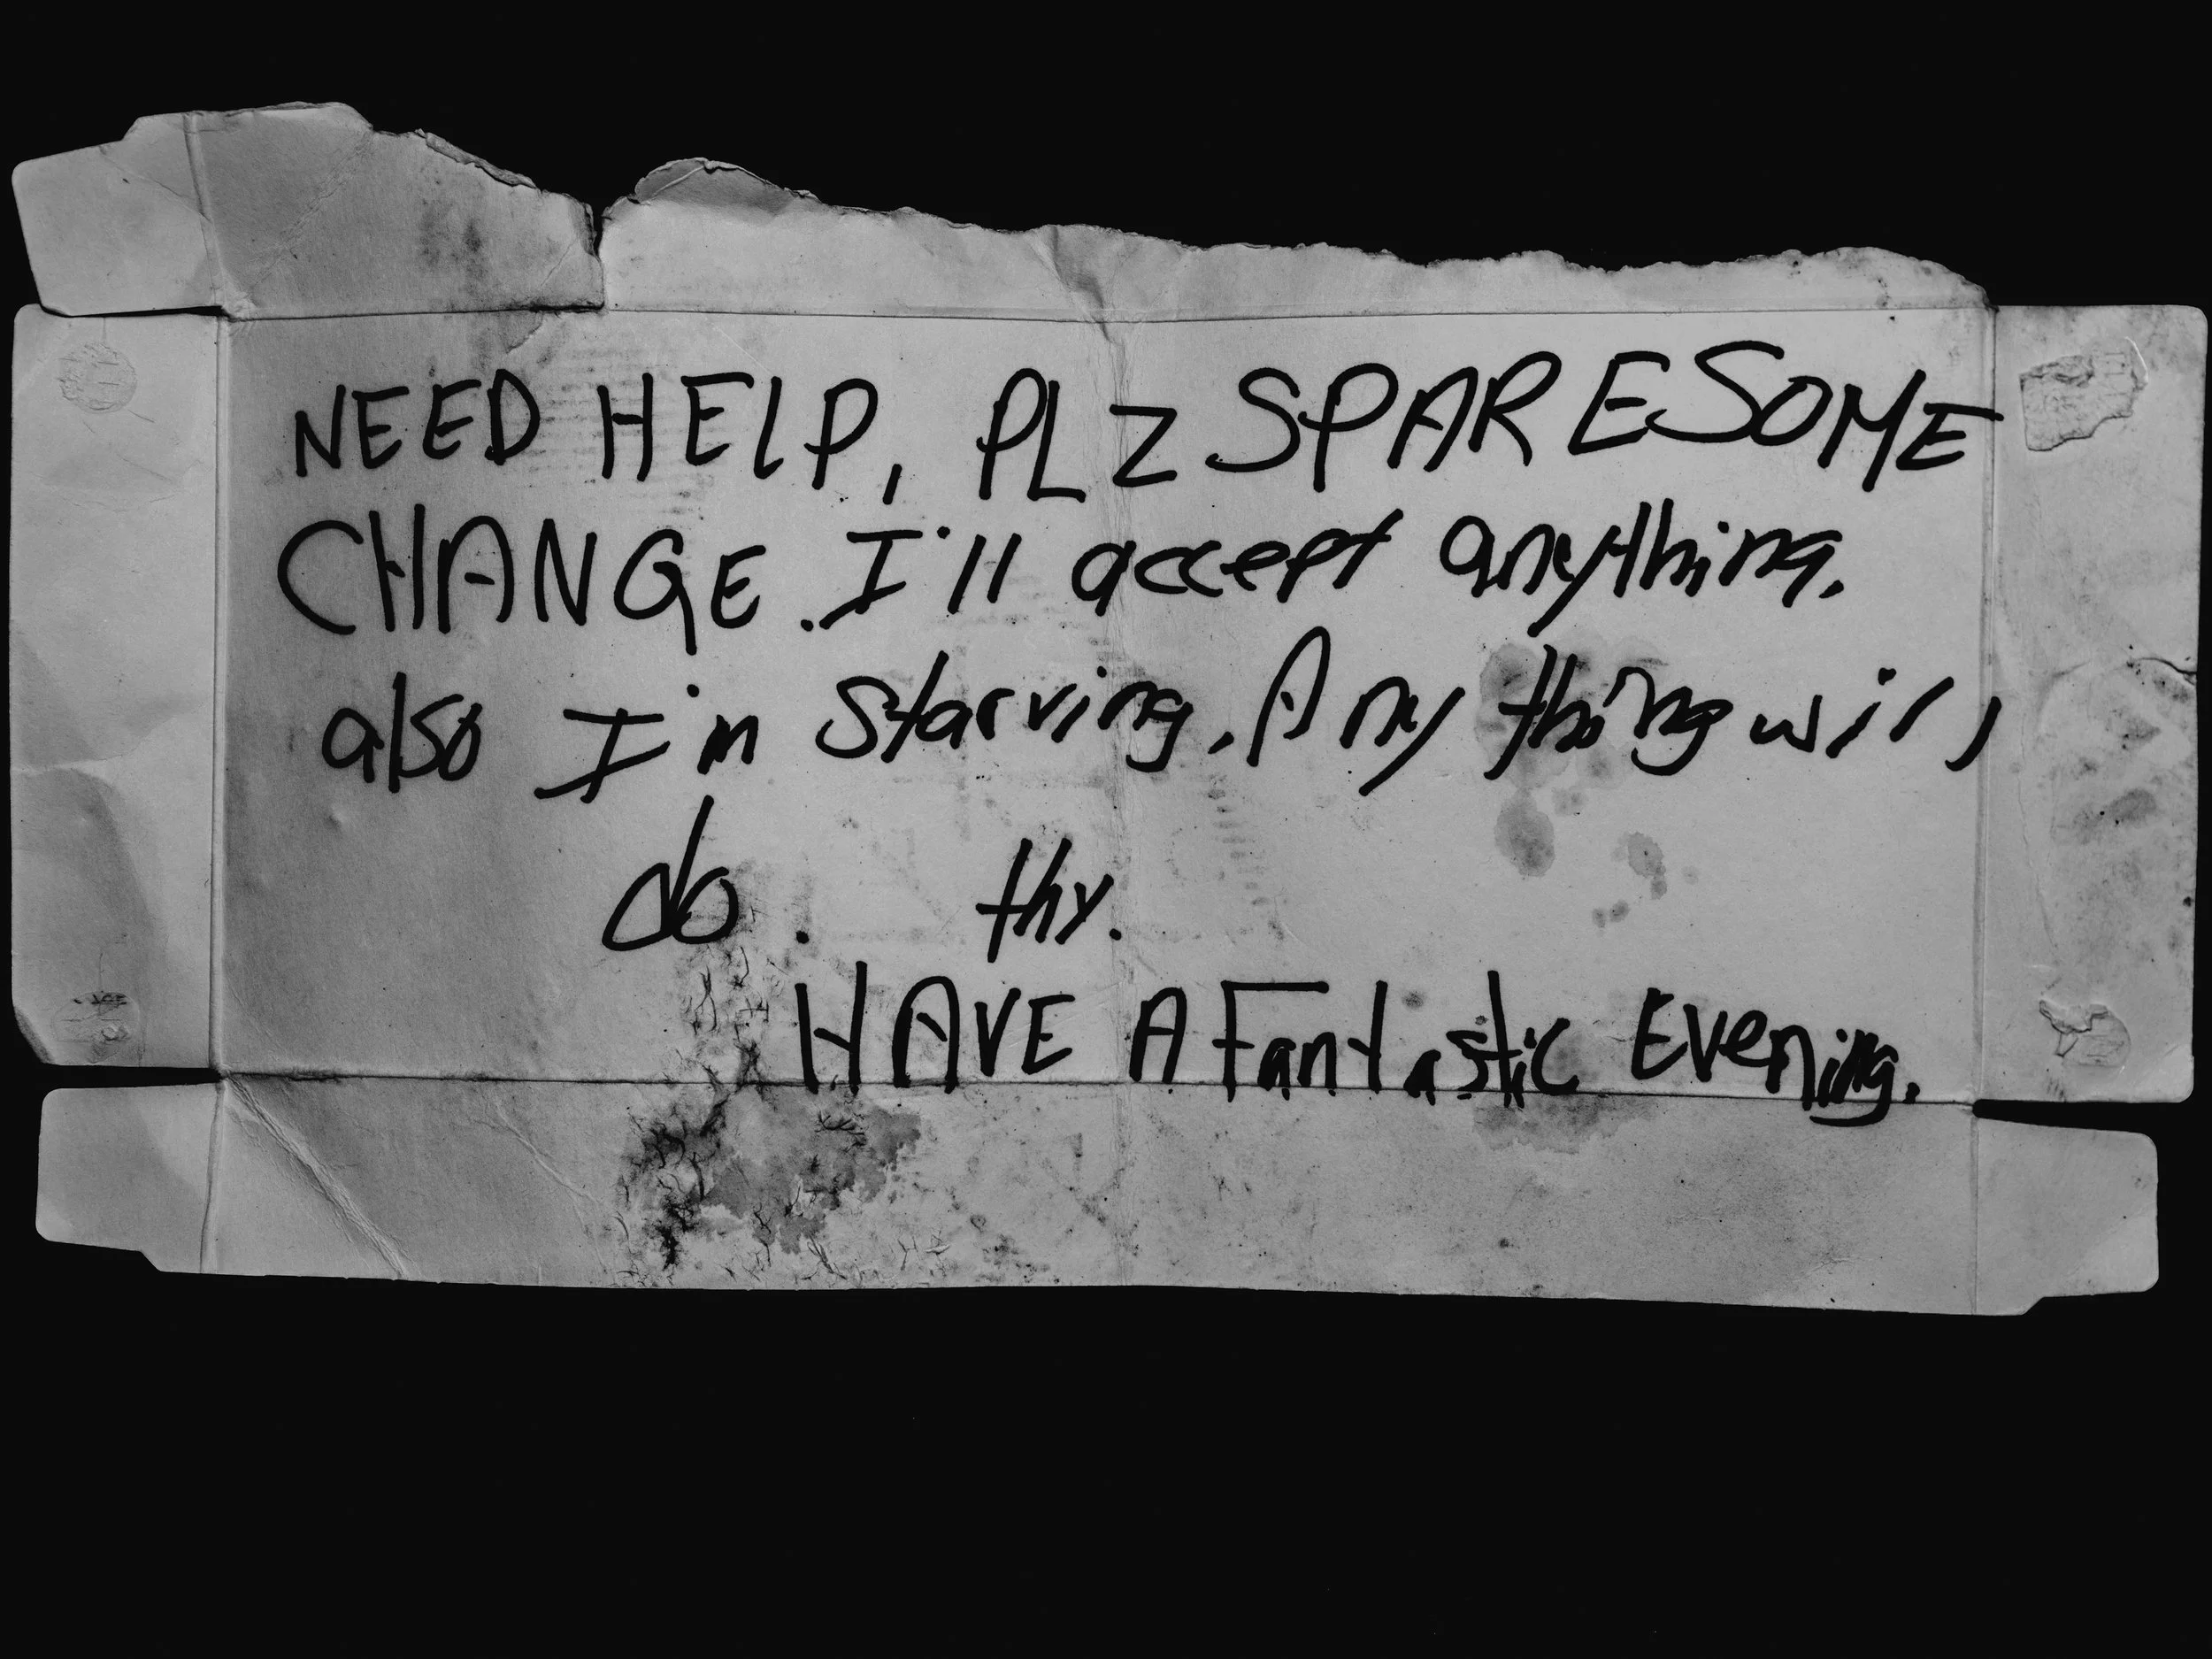 NEED HELP, PLZ SPARE SOME
CHANGE. I'll accept anything.
also I'm starving. Anything will
do. thx.
HAVE A Fantastic Evening.